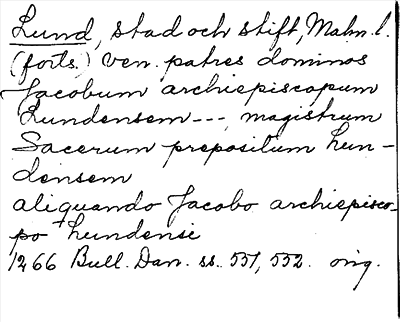 Lund, stad och stift, Malm. l.
(forts.) ven. patres dominos
Jacobum archiepiscopum
Lundensem --- magistrum
Sacerum prepositum Lun-
densem
aliquando Jacobo archiepisco-
po Lundensi
1266 Bull. Dan. ss. 551, 552. orig.